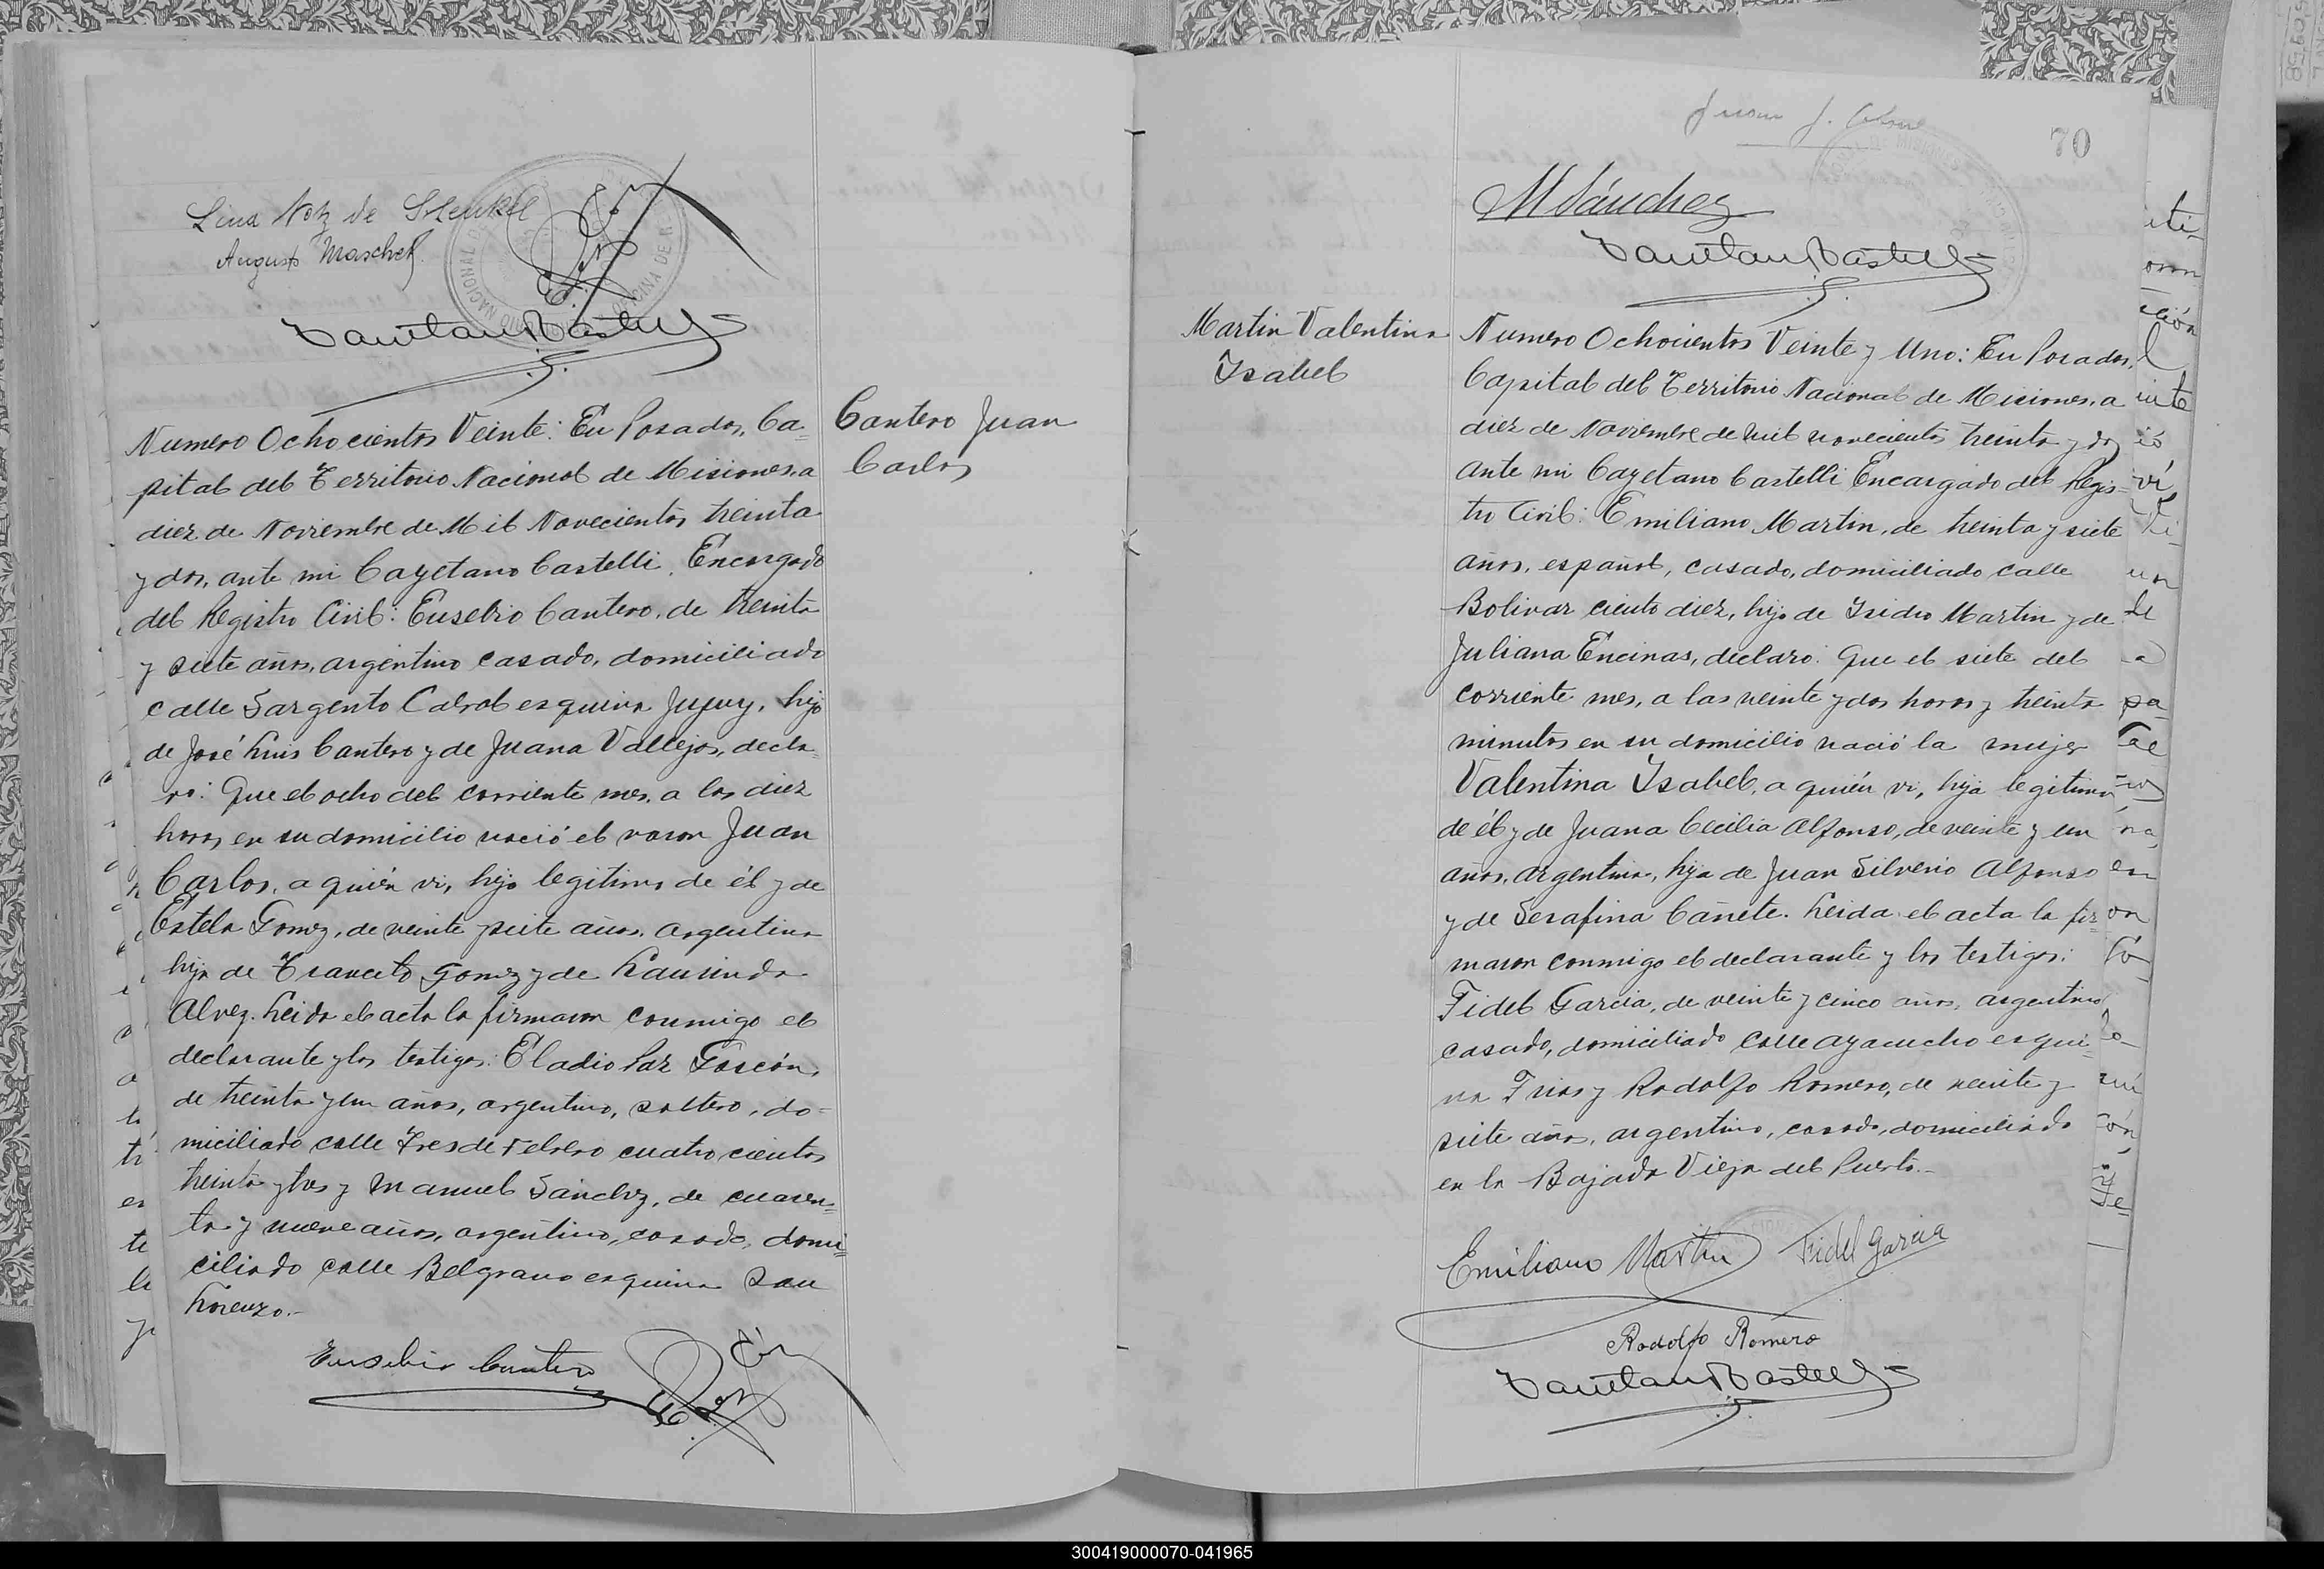 Lina Notz de Stenkel
Augusto Maschek
Numero Ochocientos Veinte: En Posadas, Ca-
pital del Territorio Nacional de Misiones, a
diez de Noviembre de Mil Novecientos treinta
y dos, ante mi Cayetano Castelli, Encargado
del Registro Civil: Eusebio Cantero, de treinta
y siete años, argentino casado, domiciliado
calle Sargento Cabral esquina Jujuy, hijo
de José Luis Cantero y de Juana Vallejos, decla-
ró: Que el ocho del corriente mes, a las diez
horas en su domicilio nació el varon Juan
Carlos, a quién vi, hijo legitimo de él y de
Estela Gomez, de veinte y siete años, argentina
hija de Gomez y de Laurinda
Alvez. Leida el acta la firmaron conmigo el
declarante y los testigos: Eladio Paz Gascón,
de treinta y un años, argentino, soltero, do-
miciliado calle Tres de Febrero cuatrocientos
treinta y tres y Manuel Sánchez, de cuaren-
ta y nueve años, argentino, casado, domi-
ciliado calle Belgrano esquina San
Lorenzo.-
Eusebio Cantero
Cantero Juan
Carlos
70
M Sánchez
Martin Valentina
Isabel
Numero Ochocientos Veinte y Uno: En Posadas,
Capital del Territorio Nacional de Misiones, a
diez de Noviembre de mil novecientos treinta y dos
ante mi Cayetano Castelli Encargado del Regis-
tro Civil: Emiliano Martin, de treinta y siete
años, español, casado, domiciliado calle
Bolivar ciento diez, hijo de Isidro Martin y de
Juliana Encinas, declaró: Que el siete del
corriente mes, a las veinte y dos horas y treinta
minutos en su domicilio nació la mujer
Valentina Isabel, a quién vi, hija legitima
de él y de Juana Cecilia Alfonso, de veinte y un
años, argentina, hija de Juan Silverio Alfonso
y de Serafina Cañete. Leida el acta la fir-
maron conmigo el declarante y los testigos:
Fidel Garcia, de veinte y cinco años, argentino
casado, domiciliado calle Ayacucho esqui-
na Frias y Rodolfo Romero, de veinte y
siete años, argentino, casado, domiciliado
en la Bajada Vieja del Puerto.-
Emiliano Martin Fidel Garcia
Rodolfo Romero
300419000070-041965